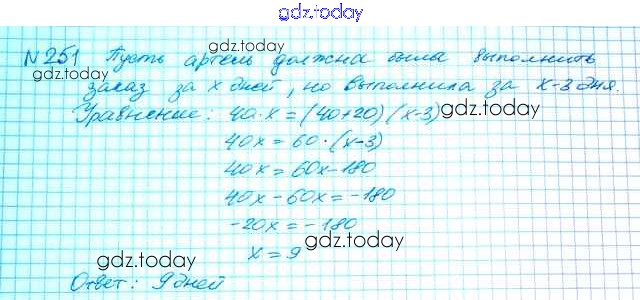 gdz.today
N 251 Пусть артель должна была выполнить
gdz.today
заказ за x дней, но выполнила за x-3 дня.
Уравнение: 40·x=(40+20)(x-3)
gdz.today
40x=60·(x-3)
40x=60x-180
40x-60x=-180
-20x=-180
gdz.today
x=9
gdz.today
Ответ: 9 дней